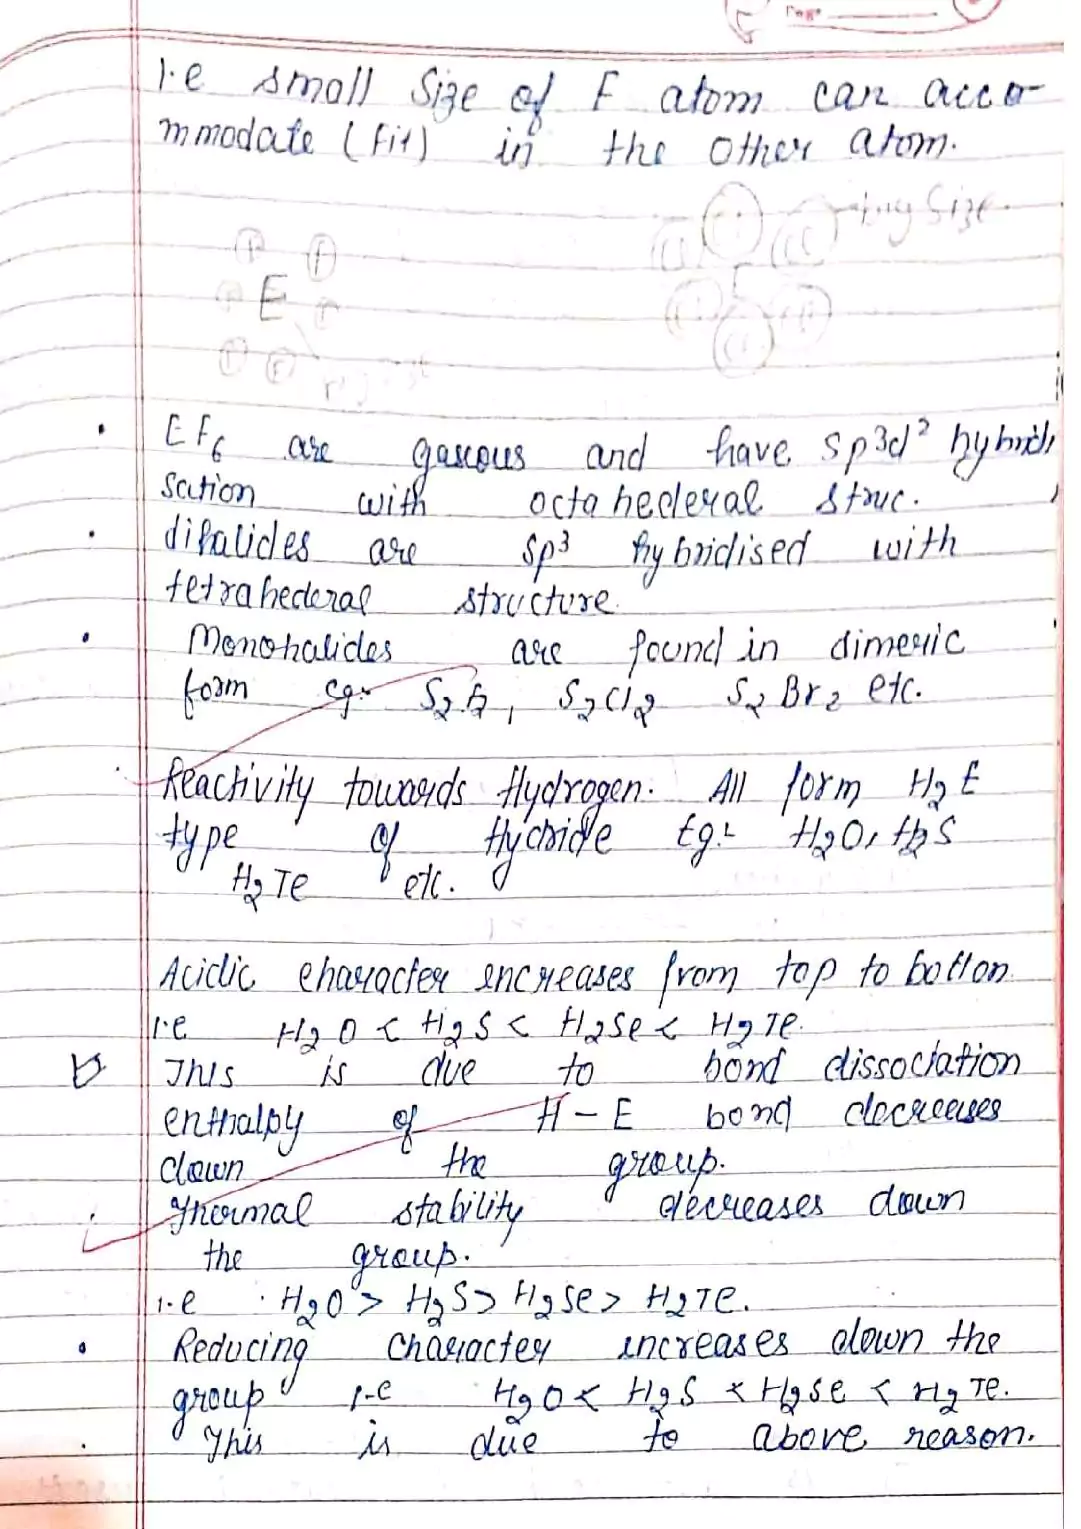 Page
I.e small Size of F atom can acco-
mmodate (Fit) in the other atom.
Big Size.
F F
E
F F
F F
EF6 are gaseous and have sp3d² hybridi
sation with octahederal struc.
dihalides are sp³ hybridised with
tetrahederal structure.
Monohalides are found in dimeric
form eg:- S2F2, S2Cl2 S2Br2 etc.
Reactivity towards Hydrogen. All form H2E
type of Hydride Eg:- H2O, H2S
H2Te etc.
Acidic character increases from top to botton.
I.e H2O < H2S < H2Se < H2Te.
This is due to bond dissociation
enthalpy of H-E bond decreases
down the group.
Thermal stability decreases down
the group.
I.e H2O > H2S > H2Se > H2Te.
Reducing Character increases down the
group I-e H2O < H2S < H2Se < H2Te.
This is due to above reason.